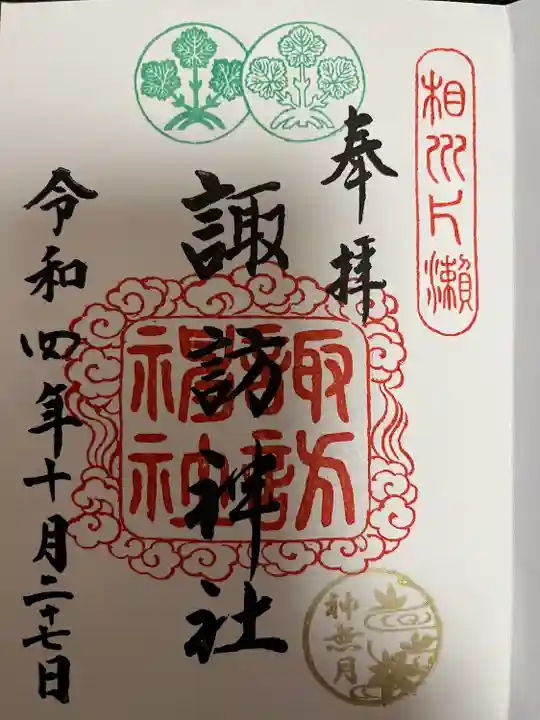 相州片瀬
奉拝
諏訪神社
諏訪
令和四年十月二十七日
神無月